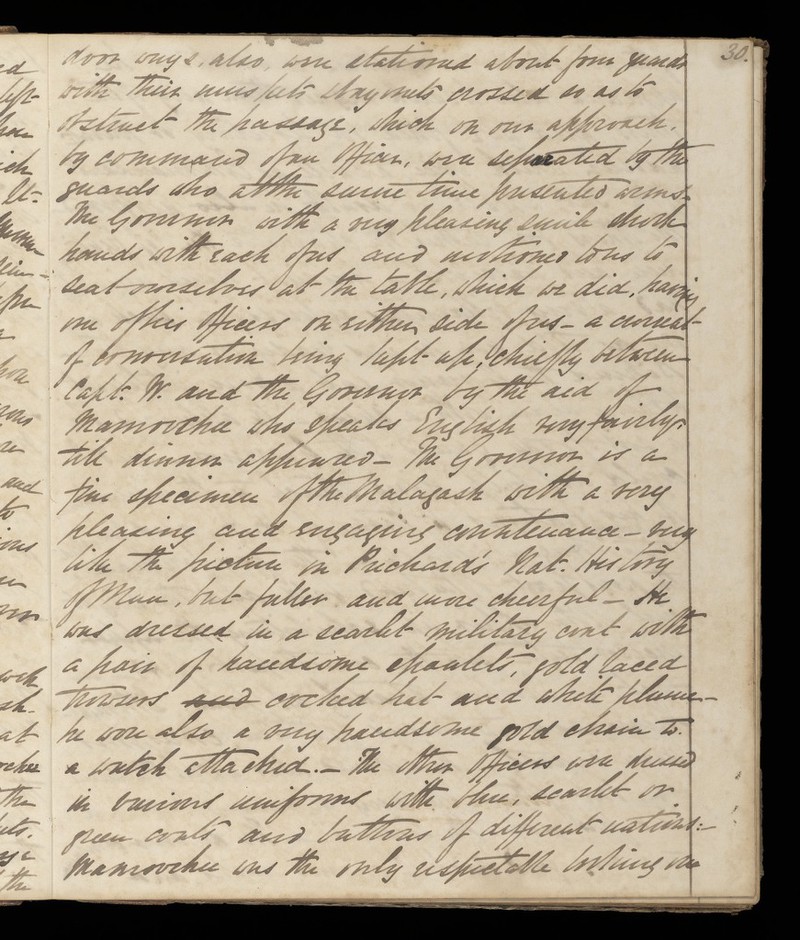 30.
door ways, also, were stationed about four guards
with their muskets & bayonets crossed so as to
obstruct the passage, which on our approach,
by command of an Officer, were separated by the
guards who at the same time presented arms.
The Governor with a very pleasing smile shook
hands with each of us and motioned to us to
seat ourselves at the table, which we did, having
one of his Officers on either side of us – a current
of conversation being kept up, chiefly between
Capt. W. and the Governor by the aid of
Mamoochee who speaks English very fairly,
till dinner appeared – The Governor is a
fine specimen of the Malagash with a very
pleasing and engaging countenance – very
like the picture in Prichard's Nat. History
of Man, but fuller and more cheerful – He
was dressed in a scarlet military coat with
a pair of handsome epaulets, gold laced
trowsers and cocked hat and white plume –
he wore also a very handsome gold chain to
a watch attached. – The other Officers were dressed
in various uniforms with blue, scarlet or
green coats and buttons of different nations: –
Mamoochee was the only respectable looking one